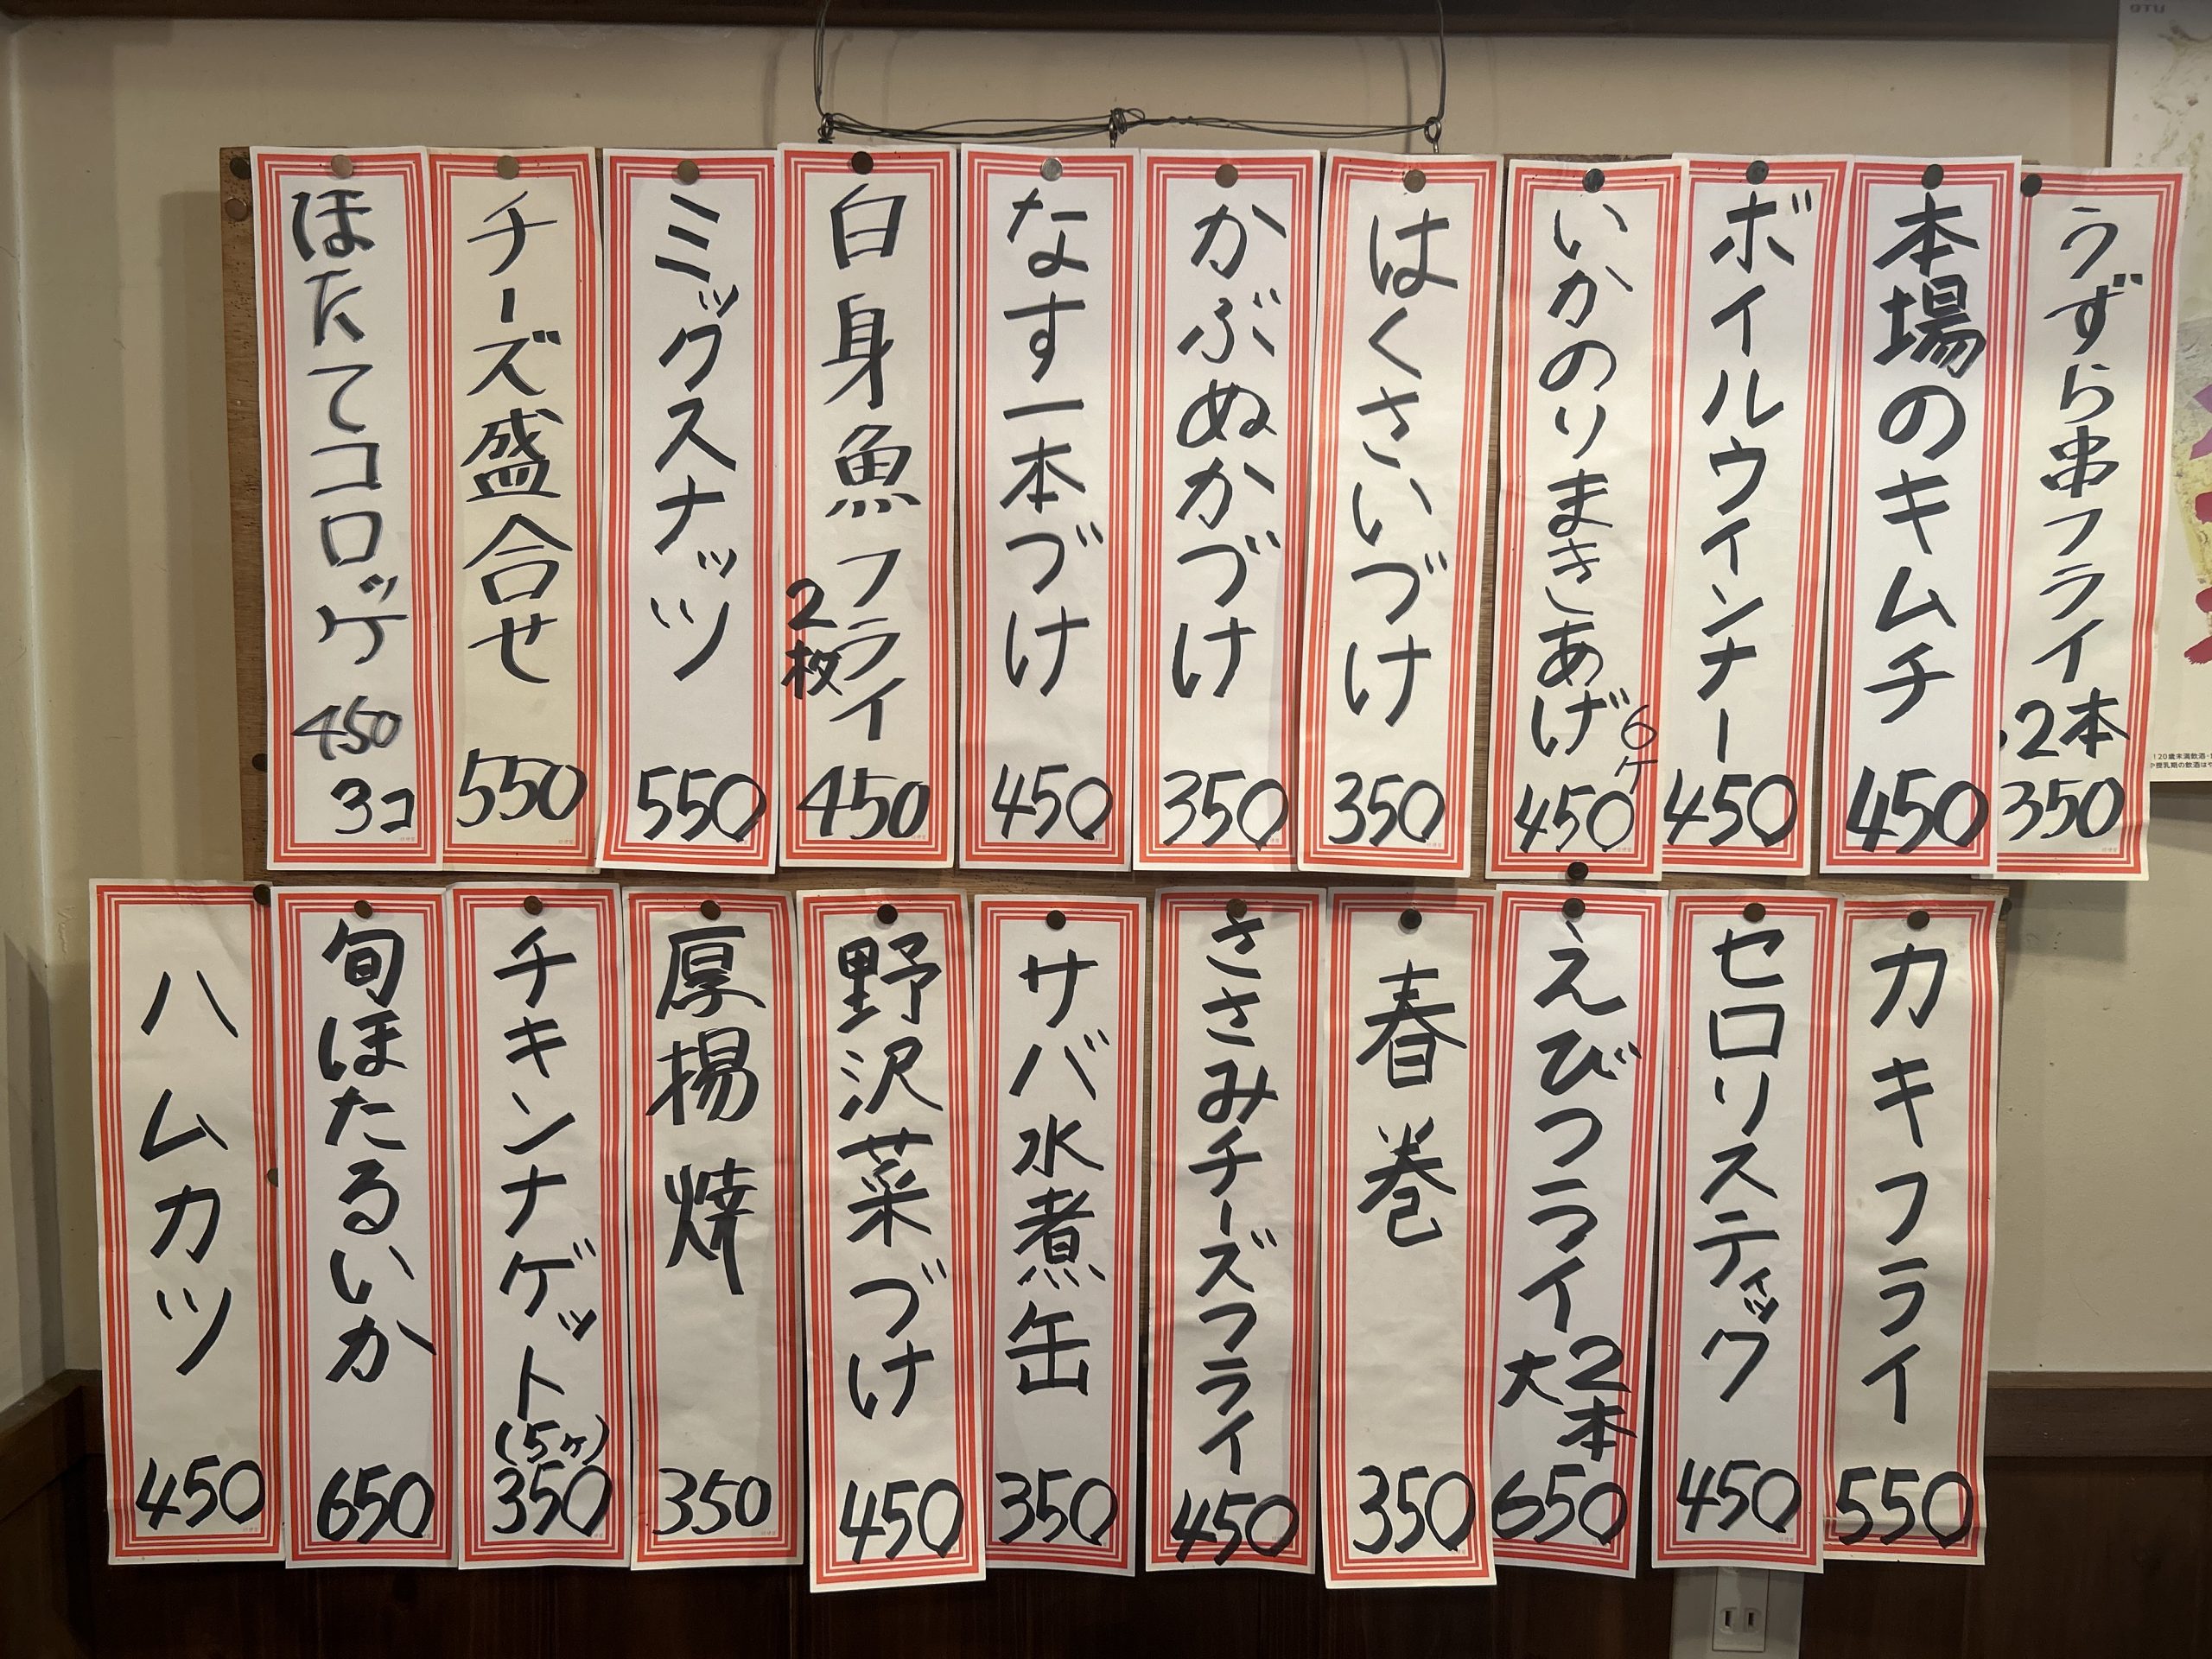 うずら串フライ
2本
350
本場のキムチ
450
ボイルウインナー
450
いかのりまきあげ
6ケ
450
はくさいづけ
350
かぶぬかづけ
350
なす一本づけ
450
白身魚フライ
2枚
450
ミックスナッツ
550
チーズ盛合せ
550
ほたてコロッケ
450
3コ
カキフライ
550
セロリスティック
450
えびフライ
大2本
650
春巻
350
ささみチーズフライ
450
サバ水煮缶
350
野沢菜づけ
450
厚揚焼
350
チキンナゲット
(5ヶ)
350
旬ほたるいか
650
ハムカツ
450